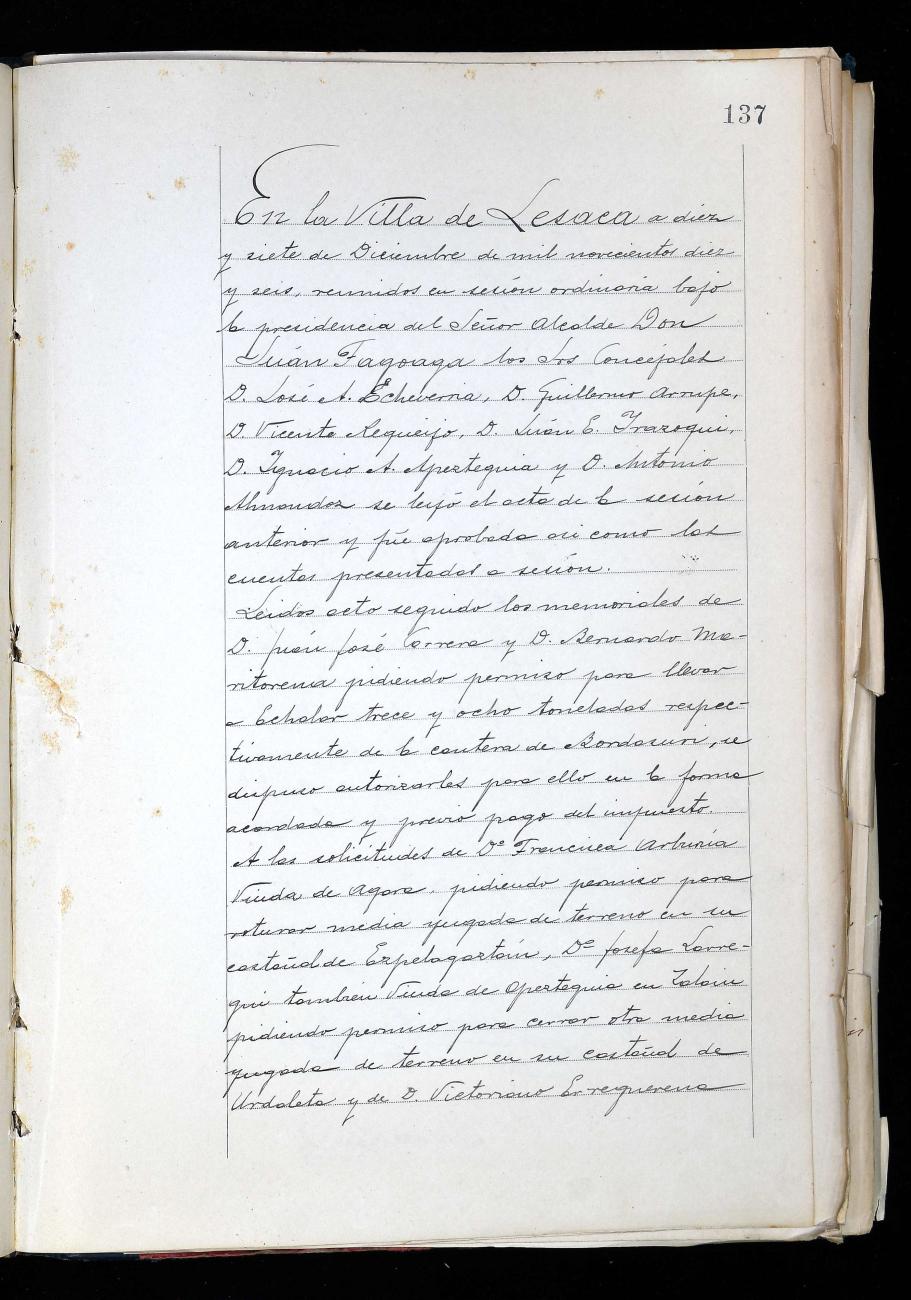 137
En la Villa de Lesaca a diez
y siete de Diciembre de mil novecientos diez
y seis, reunidos en sesión ordinaria bajo
la presidencia del Señor Alcalde Don
Juán Fagoaga los Srs Concejales
D. José A. Echeverria, D. Guillermo Arrupe,
D. Vicente Requeijo, D. Juán E. Irazoqui,
D. Ignacio A. Apezteguia y D. Antonio
Almandoz se leyó el acta de la sesión
anterior y fué aprobada asi como las
cuentas presentadas a sesión.
Leidos acto seguido los memoriales de
D. Juán José Carrera y D. Bernardo Ma-
ritorena pidiendo permiso para llevar
a Echalar trece y ocho toneladas respec-
tivamente de la cantera de Bordasuri, se
dispuso autorizarles para ello en la forma
acordada y previo pago del impuesto.
A las solicitudes de Dª Francisca Arburúa
Viuda de Agara, pidiendo permiso para
roturar media yugada de terreno en su
castañal de Ezpelagaztáin, Dª Josefa Larre-
gui tambien Viuda de Apezteguia en Zalain
pidiendo permiso para cerrar otra media
yugada de terreno en su castañal de
Urdaleta y de D. Victoriano Errequerena